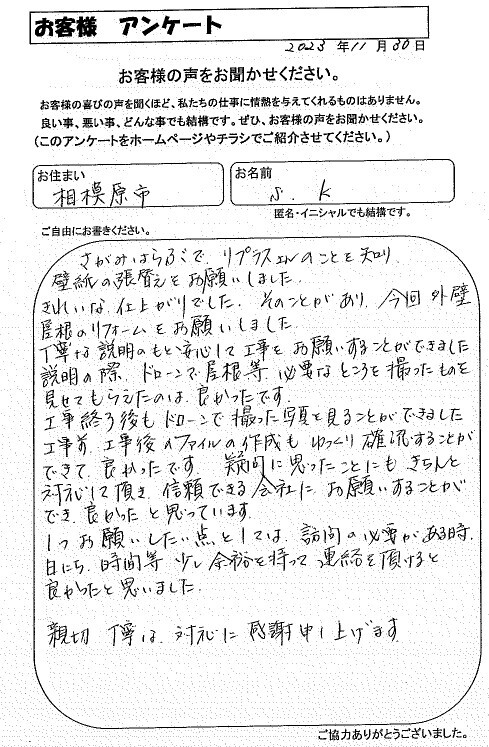 お客様 アンケート
2023 年 11 月 30 日
お客様の声をお聞かせください。
お客様の喜びの声を聞くほど、私たちの仕事に情熱を与えてくれるものはありません。
良い事、悪い事、どんな事でも結構です。ぜひ、お客様の声をお聞かせください。
(このアンケートをホームページやチラシでご紹介させてください。)
お住まい
相模原市
お名前
S. K
匿名・イニシャルでも結構です。
ご自由にお書きください。
さがみはらぶで、リプラスさんのことを知り、
壁紙の張替えをお願いしました。
きれいな仕上がりでした。そのことがあり、今回外壁
屋根のリフォームをお願いしました。
丁寧な説明のもと安心して工事をお願いすることができました
説明の際、ドローンで屋根等 必要なところを撮ったものを
見せてもらえたのは、良かったです。
工事終了後もドローンで撮った写真を見ることができました
工事前、工事後のファイルの作成も ゆっくり確認することが
できて、良かったです。疑問に思ったことにもきちんと
対応して頂き、信頼できる会社に、お願いすることが
でき、良かったと思っています。
1つお願いしたい点としては、訪問の必要がある時、
日にち、時間等 少し余裕を持って連絡を頂けると
良かったと思いました。
親切 丁寧な 対応に感謝申し上げます。
ご協力ありがとうございました。